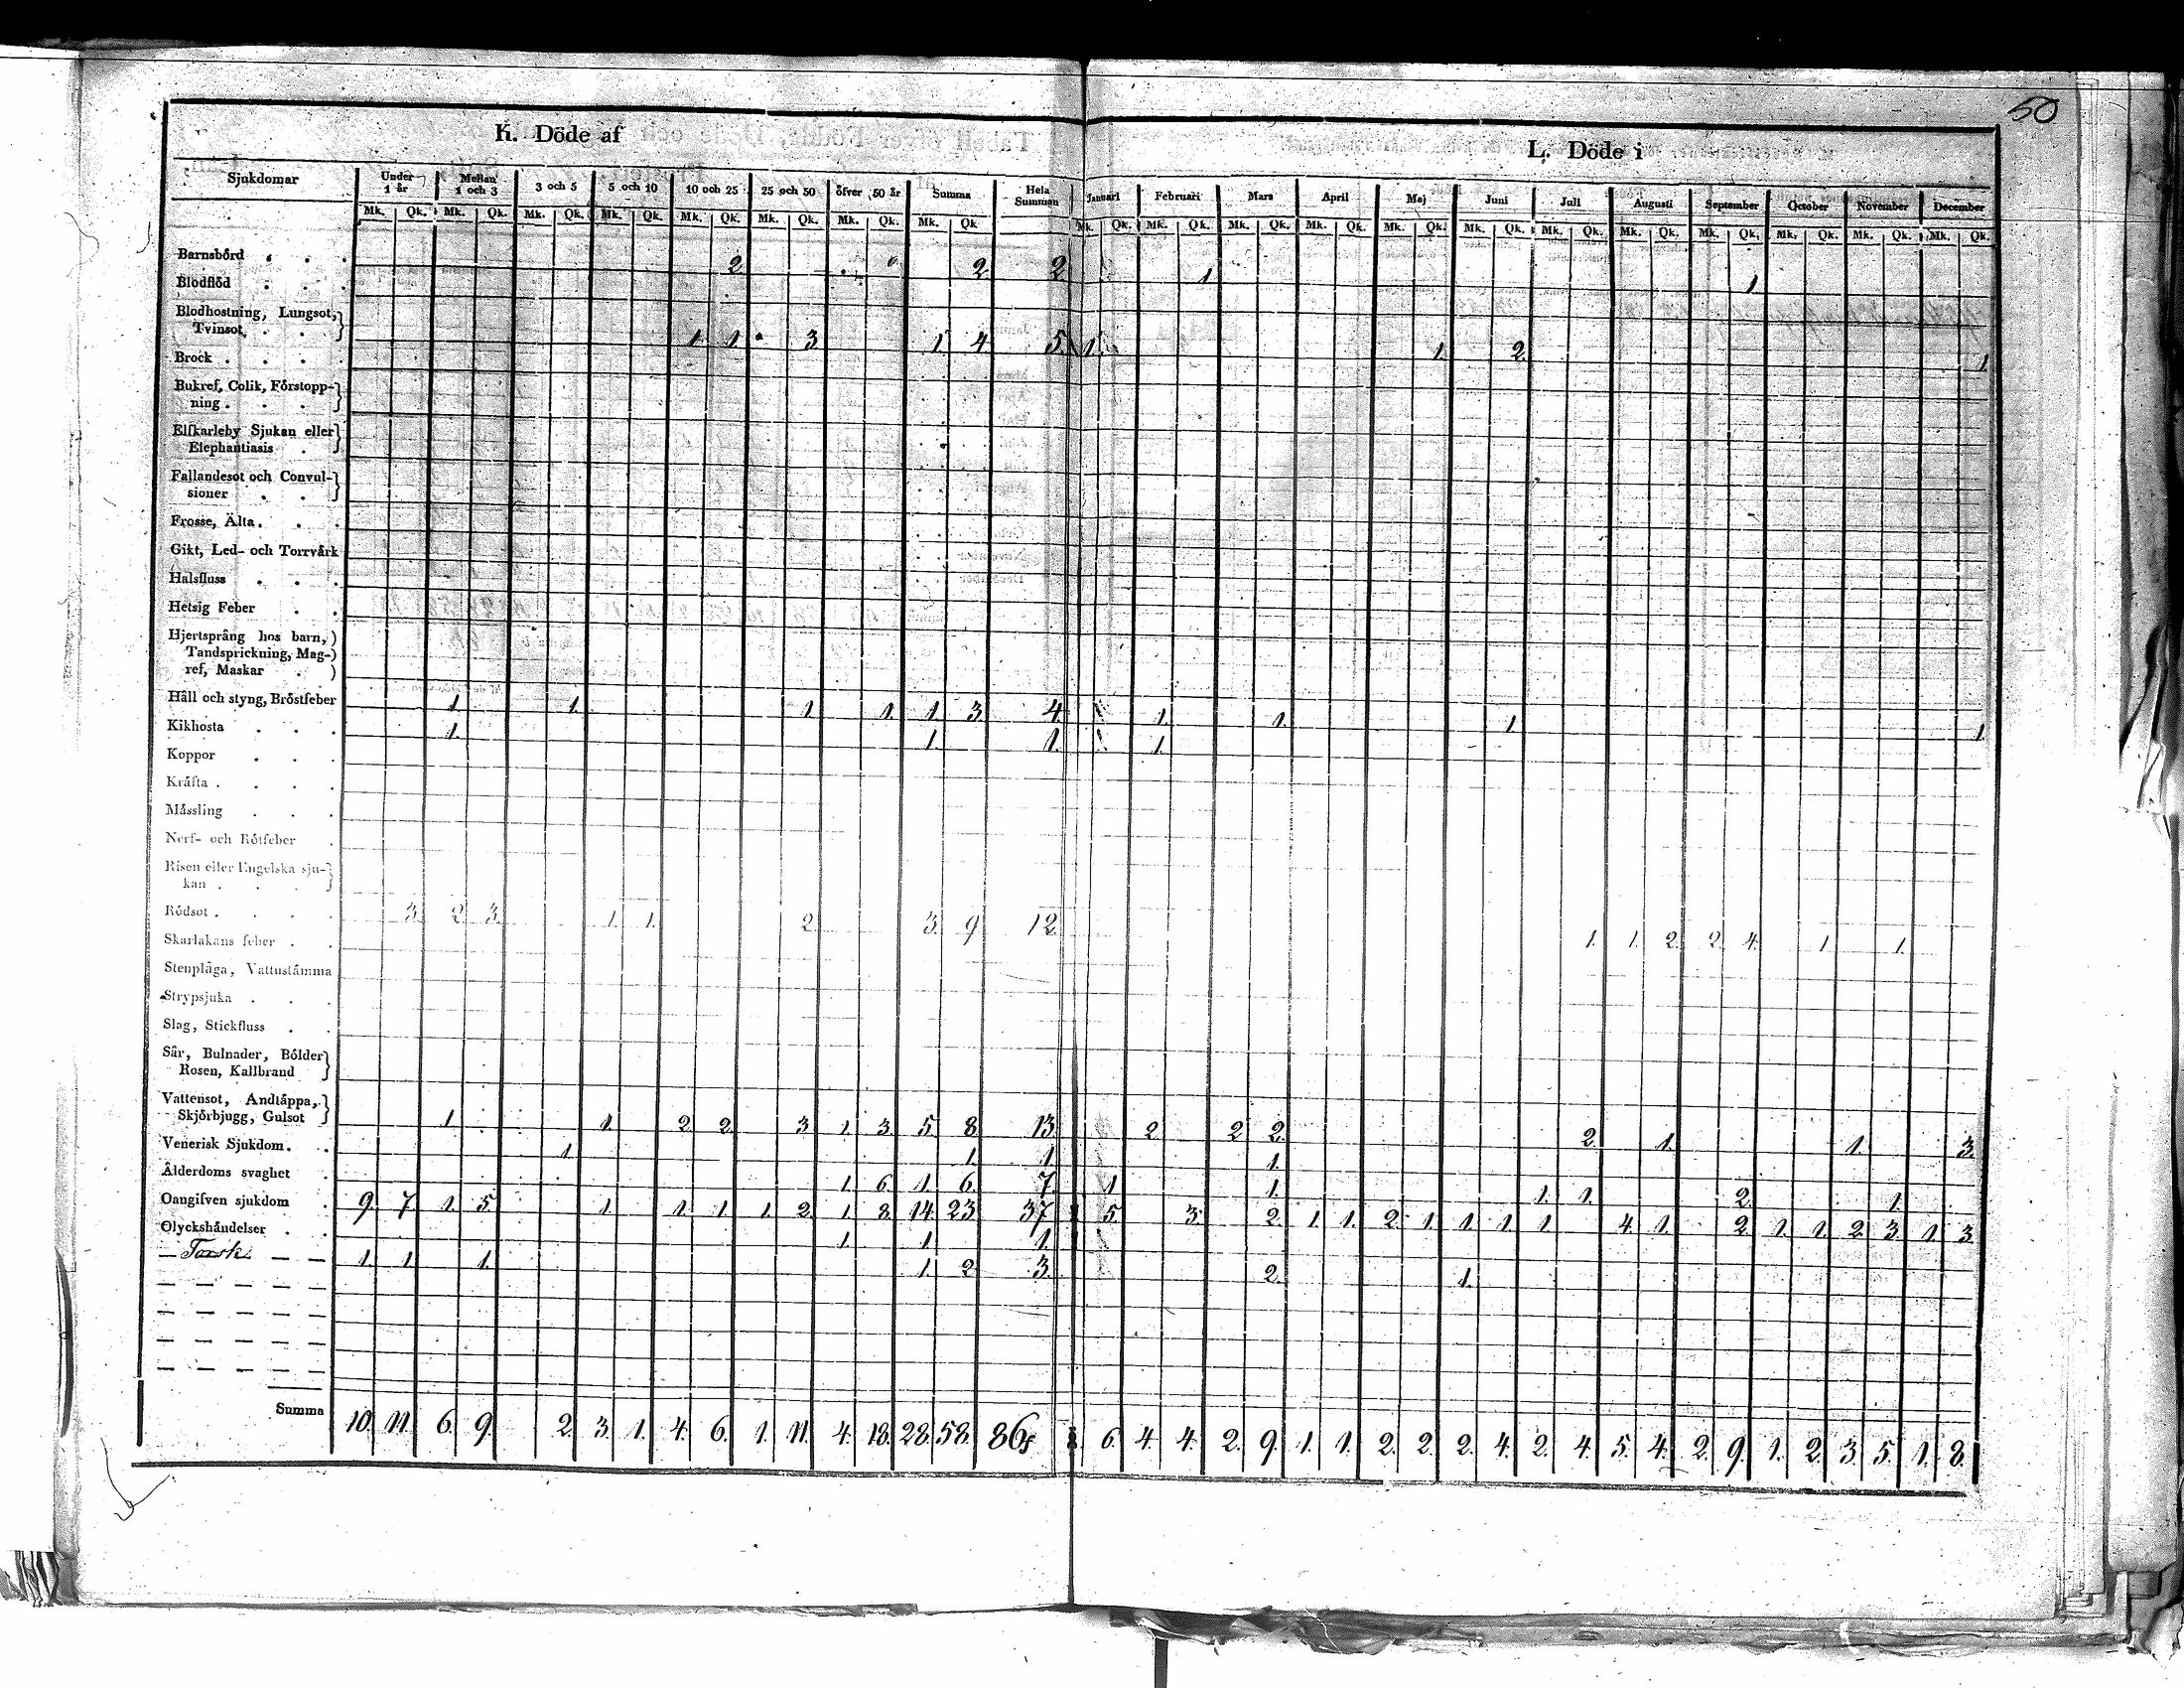 50
K. Döde af
L. Döde i
Sjukdomar Under 1 år Mellan 1 och 3 3 och 5 5 och 10 10 och 25 25 och 50 öfver 50 år Summa Hela Summan Januari Februari Mars April Maj Juni Juli Augusti September October November December
Mk. Qk. Mk. Qk. Mk. Qk. Mk. Qk. Mk. Qk. Mk. Qk. Mk. Qk. Mk. Qk. Mk. Qk. Mk. Qk. Mk. Qk. Mk. Qk. Mk. Qk. Mk. Qk. Mk. Qk. Mk. Qk. Mk. Qk. Mk. Qk. Mk. Qk. Mk. Qk.
Barnsbörd . . . 2 2 2 1 1
Blodflöd . . .
Blodhostning, Lungsot,
Tvinsot, . . 1 1 3 1 4 5 1 1 2 1
Brock . . . .
Bukref, Colik, Förstopp-
ning . . .
Elfkarleby Sjukan eller
Elephantiasis .
Fallandesot och Convul-
sioner . .
Frosse, Älta . . .
Gikt, Led- och Torrvärk
Halsfluss . . .
Hetsig Feber . .
Hjertsprång hos barn,
Tandsprickning, Mag-
ref, Maskar .
Håll och styng, Bröstfeber 1 1 1 1 1 3 4 1 1 1 1
Kikhosta . . . 1 1 1 1
Koppor . . .
Kräfta . . . .
Mässling . . .
Nerf- och Rötfeber .
Risen eller Engelska sju-
kan . . .
Rödsot . . . . 3 2 3 1 1 2 3 9 12 1 1 2 2 4 1 1
Skarlakans feber . .
Stenplåga, Vattustämma
Strypsjuka . . .
Slag, Stickfluss . .
Sår, Bulnader, Bölder
Rosen, Kallbrand
Vattensot, Andtäppa,
Skjörbjugg, Gulsot 1 1 2 2 3 1 3 5 8 13 2 2 2 2 1 1 3
Venerisk Sjukdom . . 1 1 1 1
Ålderdoms svaghet . 1 6 1 6 7 1 1 1 1 2 1
Oangifven sjukdom . 9 7 1 5 1 1 1 1 2 1 8 14 23 37 5 3 2 1 1 2 1 1 1 1 4 1 2 1 1 2 3 1 3
Olyckshändelser . . 1 1 1
Torsk 1 1 1 1 2 3 2 1
Summa 10. 11. 6. 9. 2. 3. 1. 4. 6. 1. 11. 4. 18. 28. 58. 86 6. 4. 4. 2. 9. 1. 1. 2. 2. 2. 4. 2. 4. 5. 4. 2. 9. 1. 2. 3. 5. 1. 8.